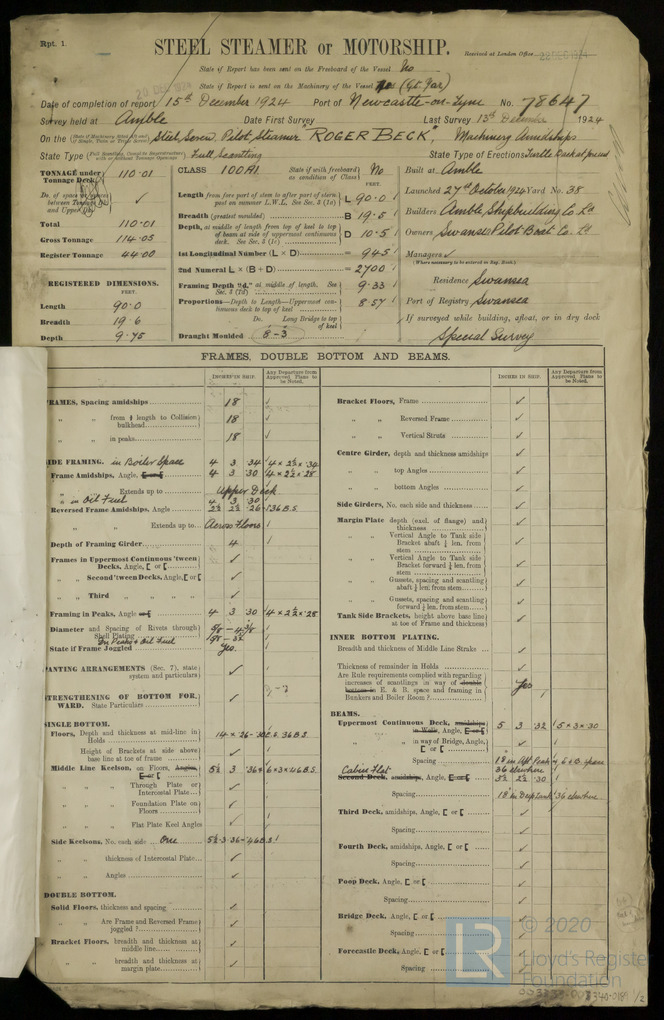 Rpt. 1.
STEEL STEAMER or MOTORSHIP.
Received at London Office 22 DEC 1924
State if Report has been sent on the Freeboard of the Vessel No
State if Report is sent on the Machinery of the Vessel
20 DEC 1924
Date of completion of report 15th December 1924 Port of Newcastle-on-Tyne No. 78647
Survey held at Amble Date First Survey Last Survey 13th December 1924
On the Steel Screw Pilot Steamer "ROGER BECK", Machinery Amidships
State Type Full Scantling State Type of Erections Turtle Back at forward
TONNAGE under Tonnage Deck 110.01
Do. of space or spaces between Tonnage Dk and Upper Dk ✓
Total 110.01
Gross Tonnage 114.05
Register Tonnage 44.00
REGISTERED DIMENSIONS.
FEET.
Length 90.0
Breadth 19.6
Depth 9.75
CLASS 100A1 State if with freeboard as condition of Class No
FEET.
Length from fore part of stem to after part of stern post on summer L.W.L. See Sec. 3 (1a) L 90.0
Breadth (greatest moulded) B 19.5
Depth, at middle of length from top of keel to top of beam at side of uppermost continuous deck. See Sec. 3 (1c) D 10.5
1st Longitudinal Number (L × D) = 945
2nd Numeral L × (B + D) = 2700
Framing Depth "d," at middle of length. See Sec. 3 (7d) 9.33
Proportions—Depth to Length—Uppermost continuous deck to top of keel 8.57
Do. Long Bridge to top of keel
Draught Moulded 8-3
Built at Amble
Launched 27th October 1924 Yard No. 38
Builders Amble Shipbuilding Co. Ld
Owners Swansea Pilot Boat Co. Ld
Managers ✓
(Where necessary to be entered in Reg. Book.)
Residence Swansea
Port of Registry Swansea
If surveyed while building, afloat, or in dry dock
Special Survey
FRAMES, DOUBLE BOTTOM AND BEAMS.
INCHES IN SHIP. Any Departure from Approved Plans to be Noted.
FRAMES, Spacing amidships 18 ✓
" " from ⅕ length to Collision bulkhead 18 ✓
" " in peaks 18 ✓
SIDE FRAMING. in Boiler Space 4 3 .34 4 × 2½ × .30
Frame Amidships, Angle, 4 3 .30 4 × 2½ × .28
" " Extends up to Upper Deck
" in Oil Fuel 4 3 .30
Reversed Frame Amidships, Angle 2½ 2½ .26 .36 B.S.
" " Extends up to Across Floors
Depth of Framing Girder 4 ✓
Frames in Uppermost Continuous 'tween Decks, Angle, [ or [ ✓
" " Second 'tween Decks, Angle, [ or [ ✓
" " Third " " ✓
Framing in Peaks, Angle or [ 4 3 .30 4 × 2½ × .28
Diameter and Spacing of Rivets through Shell Plating
In Peaks & Oil Fuel
State if Frame Joggled Yes.
PANTING ARRANGEMENTS (Sec. 7), state system and particulars ✓
STRENGTHENING OF BOTTOM FORWARD. State Particulars ✓
SINGLE BOTTOM.
Floors, Depth and thickness at mid-line in Holds 14 × .26-.30 C.E. .36 B.S.
Height of Brackets at side above base line at toe of frame ✓
Middle Line Keelson, on Floors, Angles, [ or [ 5½ 3 .36 6 × 3 × .46 B.S.
" " Through Plate or Intercostal Plate ✓
" " Foundation Plate on Floors ✓
" " Flat Plate Keel Angles ✓
Side Keelsons, No. each side One 5½ · 3 · .36 - .46 B.S.
" " thickness of Intercostal Plate ✓
" " Angles ✓
DOUBLE BOTTOM.
Solid Floors, thickness and spacing ✓
" " Are Frame and Reversed Frame joggled? ✓
Bracket Floors, breadth and thickness at middle line ✓
" " breadth and thickness at margin plate ✓
INCHES IN SHIP. Any Departure from Approved Plans to be Noted.
Bracket Floors, Frame ✓
" " Reversed Frame ✓
" " Vertical Struts ✓
Centre Girder, depth and thickness amidships ✓
" " top Angles ✓
" " bottom Angles ✓
Side Girders, No. each side and thickness ✓
Margin Plate depth (excl. of flange) and thickness ✓
" " Vertical Angle to Tank side Bracket abaft ¼ len. from stem ✓
" " Vertical Angle to Tank side Bracket forward ¼ len. from stem ✓
" " Gussets, spacing and scantling abaft ¼ len. from stem ✓
" " Gussets, spacing and scantling forward ¼ len. from stem ✓
Tank Side Brackets, height above base line at toe of Frame and thickness ✓
INNER BOTTOM PLATING.
Breadth and thickness of Middle Line Strake ✓
Thickness of remainder in Holds ✓
Are Rule requirements complied with regarding increases of scantlings in way of double bottom in E. & B. space and framing in Bunkers and Boiler Room? Yes
BEAMS.
Uppermost Continuous Deck, amidships in Wells, Angle, [ or [ 5 3 .32 5 × 3 × .30
" " in way of Bridge, Angle, [ or [ ✓
Spacing 18 in Aft Peak & E & B. Space 36 elsewhere
Cabin Flat
Second Deck, amidships, Angle, [ or [ 3½ 2½ .30
Spacing 18 in Deep Tank 36 elsewhere
Third Deck, amidships, Angle, [ or [ ✓
Spacing ✓
Fourth Deck, amidships, Angle, [ or [ ✓
Spacing ✓
Poop Deck, Angle, [ or [ ✓
Spacing ✓
Bridge Deck, Angle, [ or [ ✓
Spacing ✓
Forecastle Deck, Angle, [ or [ ✓
Spacing ✓
LR
© 2020
Lloyd's Register
Foundation